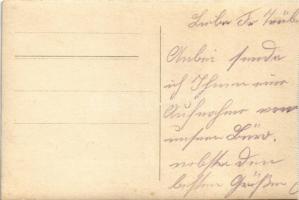 Liebe Fr. Träub
Anbei sende
ich Ihnen eine
Aufnahme von
unserm Büro.
nebst den
besten Grüßen